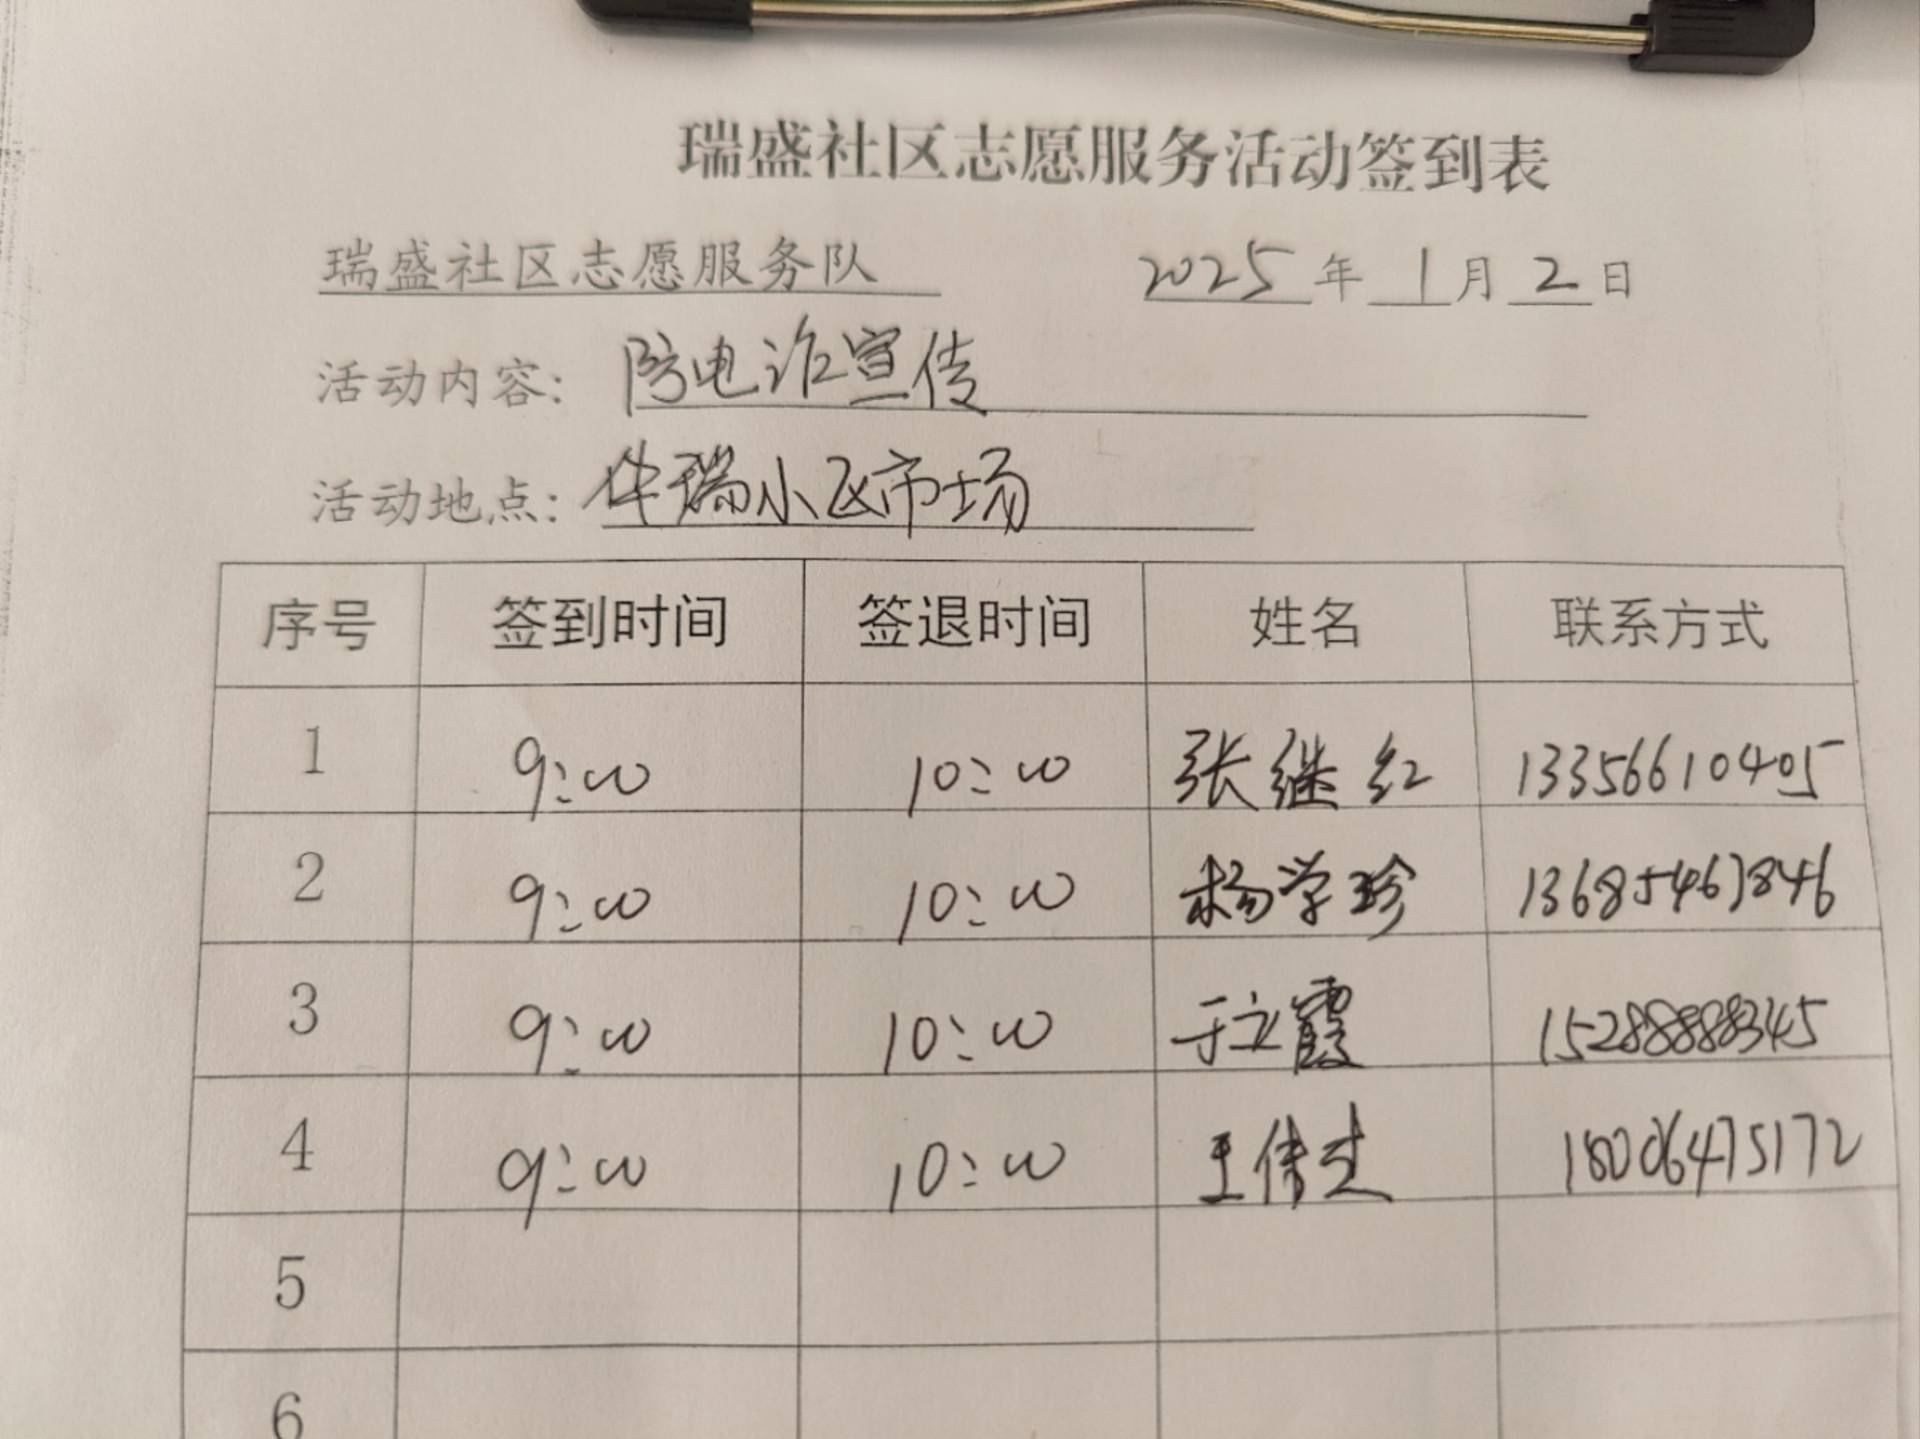 瑞盛社区志愿服务活动签到表
瑞盛社区志愿服务队 2025年1月2日
活动内容：防电诈宣传
活动地点：华瑞小区市场
序号 签到时间 签退时间 姓名 联系方式
1 9:00 10:00 张继红 13356610405
2 9:00 10:00 杨学珍 13685463846
3 9:00 10:00 于立霞 15288888345
4 9:00 10:00 王伟 18006475172
5
6